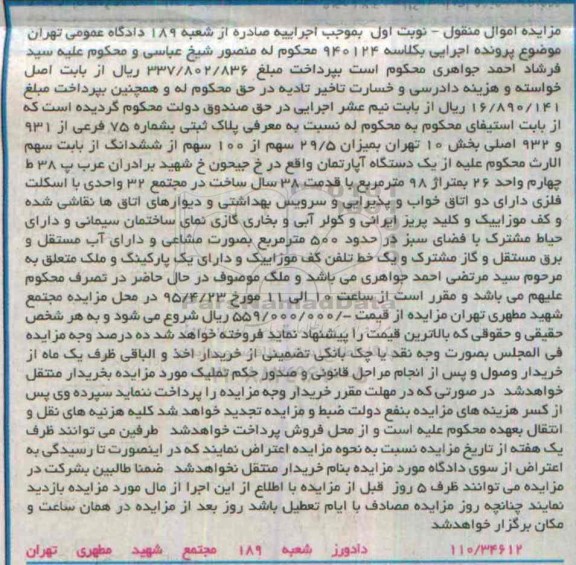 مزایده اموال منقول - نوبت اول بموجب اجراییه صادره از شعبه ۱۸۹ دادگاه عمومی تهران
موضوع پرونده اجرایی بکلاسه ۹۴۰۱۲۴ محکوم له منصور شیخ عباسی و محکوم علیه سید
فرشاد احمد جواهری محکوم است بپرداخت مبلغ ۳۳۷/۸۰۲/۸۳۶ ریال از بابت اصل
خواسته و هزینه دادرسی و خسارت تاخیر تادیه در حق محکوم له و همچنین بپرداخت مبلغ
۱۶/۸۹۰/۱۴۱ ریال از بابت نیم عشر اجرایی در حق صندوق دولت محکوم گردیده است که
از بابت استیفای محکوم به محکوم له نسبت به معرفی پلاک ثبتی بشماره ۷۵ فرعی از ۹۳۱
و ۹۳۲ اصلی بخش ۱۰ تهران بمیزان ۲۹/۵ سهم از ۱۰۰ سهم از ششدانگ از بابت سهم
الارث محکوم علیه از یک دستگاه آپارتمان واقع در خ جیحون خ شهید برادران عرب پ ۳۸ ط
چهارم واحد ۲۶ بمتراژ ۹۸ مترمربع با قدمت ۳۸ سال ساخت در مجتمع ۳۲ واحدی با اسکلت
فلزی دارای دو اتاق خواب و پذیرایی و سرویس بهداشتی و دیوارهای اتاق ها نقاشی شده
و کف موزاییک و کلید پریز ایرانی و کولر آبی و بخاری گازی نمای ساختمان سیمانی و دارای
حیاط مشترک با فضای سبز در حدود ۵۰۰ مترمربع بصورت مشاعی و دارای آب مستقل و
برق مستقل و گاز مشترک و یک خط تلفن کف موزاییک و دارای یک پارکینگ و ملک متعلق به
مرحوم سید مرتضی احمد جواهری می باشد و ملک موصوف در حال حاضر در تصرف محکوم
علیهم می باشد و مقرر است از ساعت ۱۰ الی ۱۱ مورخ ۹۵/۴/۲۳ در محل مزایده مجتمع
شهید مطهری تهران مزایده از قیمت -/۵۵۹/۰۰۰/۰۰۰ ریال شروع می شود و به هر شخص
حقیقی و حقوقی که بالاترین قیمت را پیشنهاد نماید فروخته خواهد شد ده درصد وجه مزایده
فی المجلس بصورت وجه نقد یا چک بانکی تضمینی از خریدار اخذ و الباقی ظرف یک ماه از
خریدار وصول و پس از انجام مراحل قانونی و صدور حکم تملیک مورد مزایده بخریدار منتقل
خواهدشد در صورتی که در مهلت مقرر خریدار وجه مزایده را پرداخت ننماید سپرده وی پس
از کسر هزینه های مزایده بنفع دولت ضبط و مزایده تجدید خواهد شد کلیه هزنیه های نقل و
انتقال بعهده محکوم علیه است و از محل فروش پرداخت خواهدشد طرفین می توانند ظرف
یک هفته از تاریخ مزایده نسبت به نحوه مزایده اعتراض نمایند که در اینصورت تا رسیدگی به
اعتراض از سوی دادگاه مورد مزایده بنام خریدار منتقل نخواهدشد ضمنا طالبین بشرکت در
مزایده می توانند ظرف ۵ روز قبل از مزایده با اطلاع از این اجرا از مال مورد مزایده بازدید
نمایند چنانچه روز مزایده مصادف با ایام تعطیل باشد روز بعد از مزایده در همان ساعت و
مکان برگزار خواهدشد
۱۱۰/۳۴۶۱۲ دادورز شعبه ۱۸۹ مجتمع شهید مطهری تهران